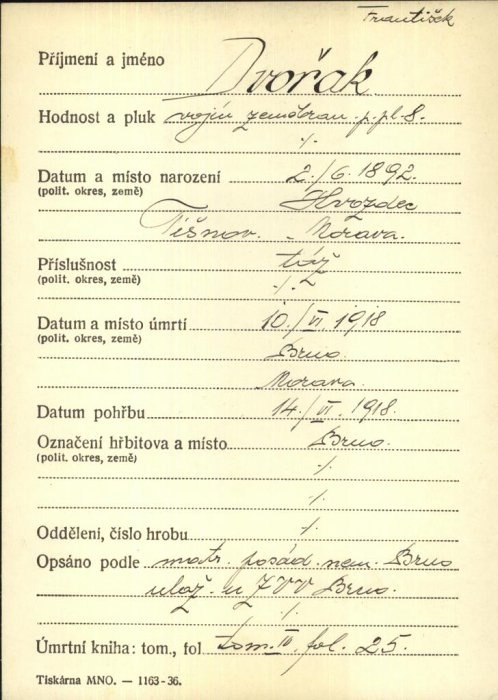 František
Příjmení a jméno Dvořak
Hodnost a pluk vojín zeměbran. p. pl. 8.
⁒
Datum a místo narození 2./6. 1892.
(polit. okres, země) Hvozdec
Tišnov. Morava.
Příslušnost táž
(polit. okres, země) ⁒
Datum a místo úmrtí 10./VI. 1918
(polit. okres, země) Brno.
Morava.
Datum pohřbu 14./VI. 1918.
Označení hřbitova a místo Brno.
(polit. okres, země) ⁒
⁒
Oddělení, číslo hrobu ⁒
Opsáno podle matr. posád. nem. Brno
ulož. u ZVV Brno.
⁒
Úmrtní kniha: tom., fol tom. IV fol. 25.
Tiskárna MNO. — 1163-36.